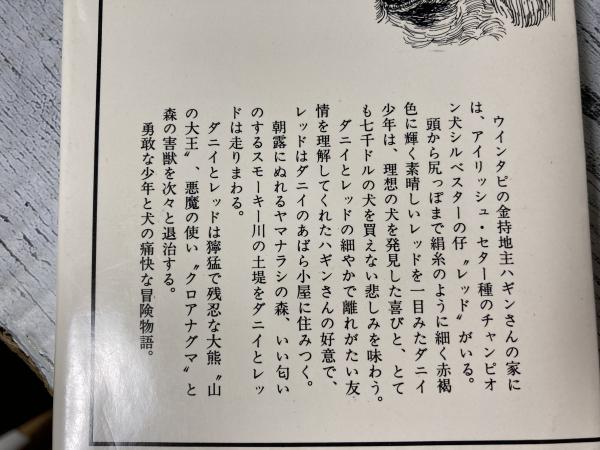 ウインタピの金持地主ハギンさんの家に
は、アイリッシュ・セター種のチャンピオ
ン犬シルベスターの仔〝レッド〟がいる。
頭から尻っぽまで絹糸のように細く赤褐
色に輝く素晴しいレッドを一目みたダニイ
少年は、理想の犬を発見した喜びと、とて
も七千ドルの犬を買えない悲しみを味わう。
ダニイとレッドの細やかで離れがたい友
情を理解してくれたハギンさんの好意で、
レッドはダニイのあばら小屋に住みつく。
朝露にぬれるヤマナラシの森、いい匂い
のするスモーキー川の土堤をダニイとレッ
ドは走りまわる。
ダニイとレッドは獰猛で残忍な大熊〝山
の大王〟、悪魔の使い〝クロアナグマ〟と
森の害獣を次々と退治する。
勇敢な少年と犬の痛快な冒険物語。